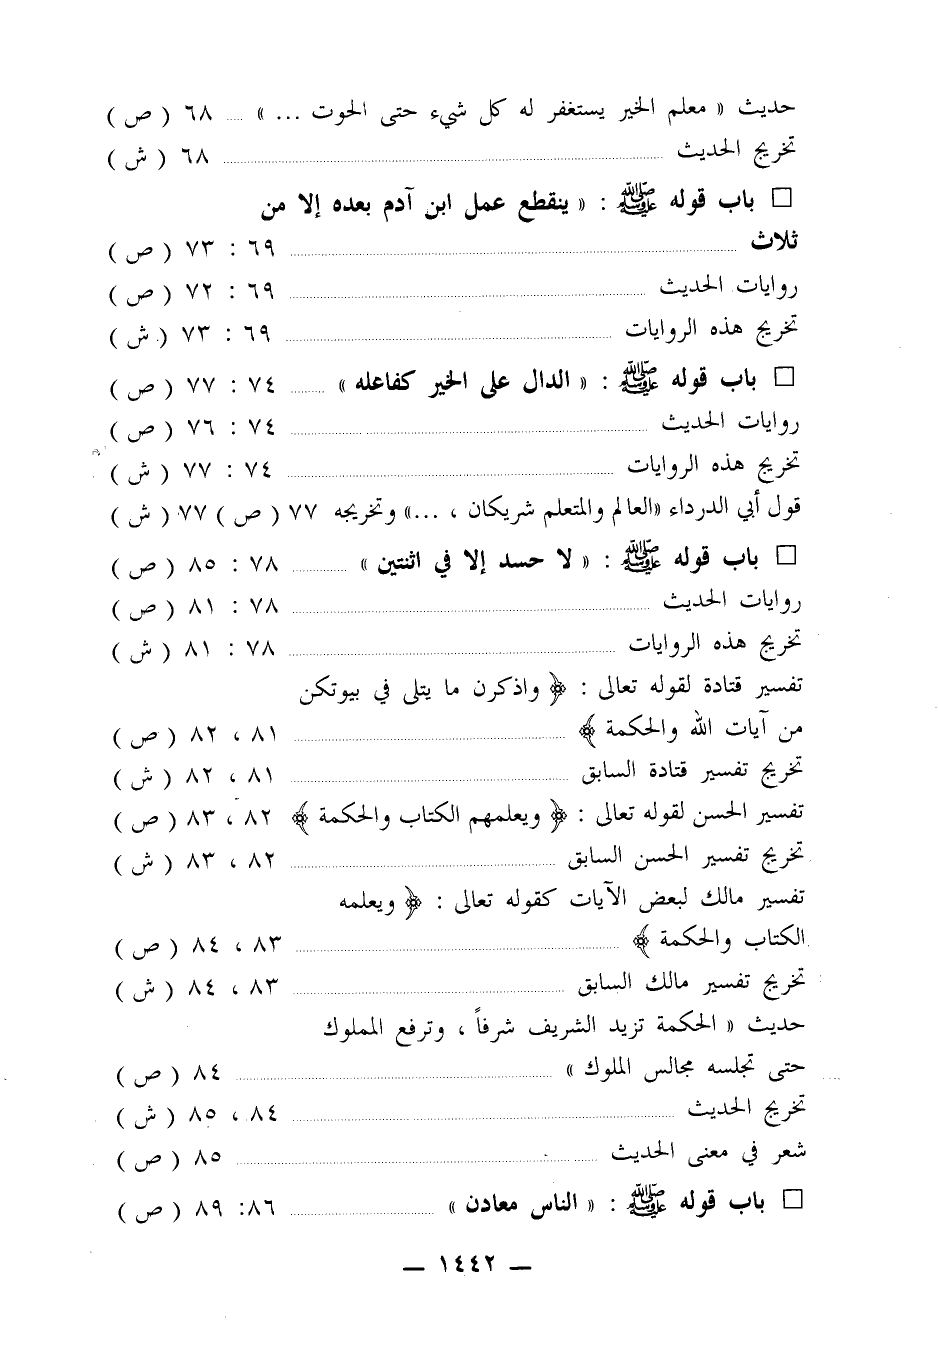 حديث « معلم الخير يستغفر له كل شيء حتى الحوت ... » ..... ٦٨ ( ص )
تخريج الحديث ..... ٦٨ ( ش )
□ باب قوله ﷺ : « ينقطع عمل ابن آدم بعده إلا من
ثلاث ..... ٦٩ : ٧٣ ( ص )
روايات الحديث ..... ٦٩ : ٧٢ ( ص )
تخريج هذه الروايات ..... ٦٩ : ٧٣ ( ش )
□ باب قوله ﷺ : « الدال على الخير كفاعله » ..... ٧٤ : ٧٧ ( ص )
روايات الحديث ..... ٧٤ : ٧٦ ( ص )
تخريج هذه الروايات ..... ٧٤ : ٧٧ ( ش )
قول أبي الدرداء «العالم والمتعلم شريكان ، ...» وتخريجه ٧٧ ( ص ) ٧٧ ( ش )
□ باب قوله ﷺ : « لا حسد إلا في اثنتين » ..... ٧٨ : ٨٥ ( ص )
روايات الحديث ..... ٧٨ : ٨١ ( ص )
تخريج هذه الروايات ..... ٧٨ : ٨١ ( ش )
تفسير قتادة لقوله تعالى : ﴿ واذكرن ما يتلى في بيوتكن
من آيات الله والحكمة ﴾ ..... ٨١ ، ٨٢ ( ص )
تخريج تفسير قتادة السابق ..... ٨١ ، ٨٢ ( ش )
تفسير الحسن لقوله تعالى : ﴿ ويعلمهم الكتاب والحكمة ﴾ ٨٢ ، ٨٣ ( ص )
تخريج تفسير الحسن السابق ..... ٨٢ ، ٨٣ ( ش )
تفسير مالك لبعض الآيات كقوله تعالى : ﴿ ويعلمه
الكتاب والحكمة ﴾ ..... ٨٣ ، ٨٤ ( ص )
تخريج تفسير مالك السابق ..... ٨٣ ، ٨٤ ( ش )
حديث « الحكمة تزيد الشريف شرفاً ، وترفع المملوك
حتى تجلسه مجالس الملوك » ..... ٨٤ ( ص )
تخريج الحديث ..... ٨٤ ، ٨٥ ( ش )
شعر في معنى الحديث ..... ٨٥ ( ص )
□ باب قوله ﷺ : « الناس معادن » ..... ٨٦: ٨٩ ( ص )
— ١٤٤٢ —